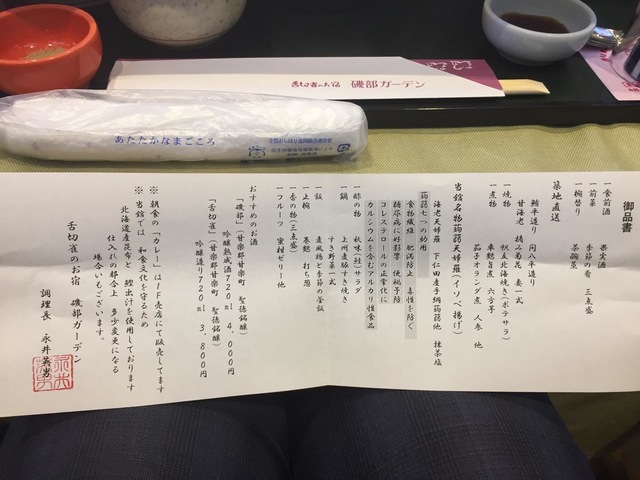 舌切雀のお宿 磯部ガーデン
あたたかなまごころ
御品書
一食前酒 果実酒
一前菜 季節の肴 三点盛
一椀替り 茶碗蒸
築地直送
鮪平造り 間八平造り
甘海老 摘み菊花 妻一式
一焼物 帆立北海焼き(ポテサラ)
一煮物 車麩旨煮 六方芋
茄子オランダ煮 人参 他
当館名物蒟蒻天婦羅(イソベ揚げ)
海老天婦羅 下仁田産手綱蒟蒻他 抹茶塩
蒟蒻七つの効用
食物繊維 肥満防止 毒性を防ぐ
糖尿病に好影響 便秘予防
コレステロールの正常化に
カルシウムを含むアルカリ性食品
一酢の物 秋味(鮭)サラダ
一鍋 上州麦豚すき焼き
すき野菜一式
一飯 麦風鶏と季節の釜飯
一止椀 巻麩 打ち葱
一香の物(三点盛)
一フルーツ 蜜柑ゼリー他
おすすめのお酒
「磯部」(甘楽郡甘楽町 聖徳銘醸)
吟醸熟成酒720ml 4,000円
「舌切雀」(甘楽郡甘楽町 聖徳銘醸)
吟醸造り720ml 3,800円
※ 朝食の「カレー」は1F売店にて販売してます
※ 当館では 和食文化を守るため
北海道産昆布と 鰹出汁を使用しております
仕入れの都合上 多少変更になる
場合もございます。
舌切雀のお宿 磯部ガーデン
調理長 永井英男